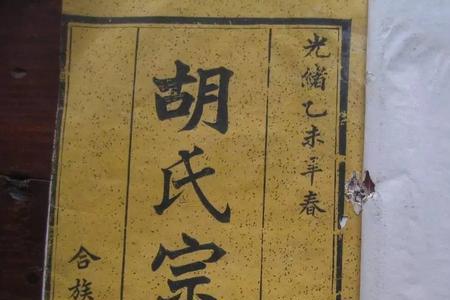 光緒乙未年春
胡氏宗
合族